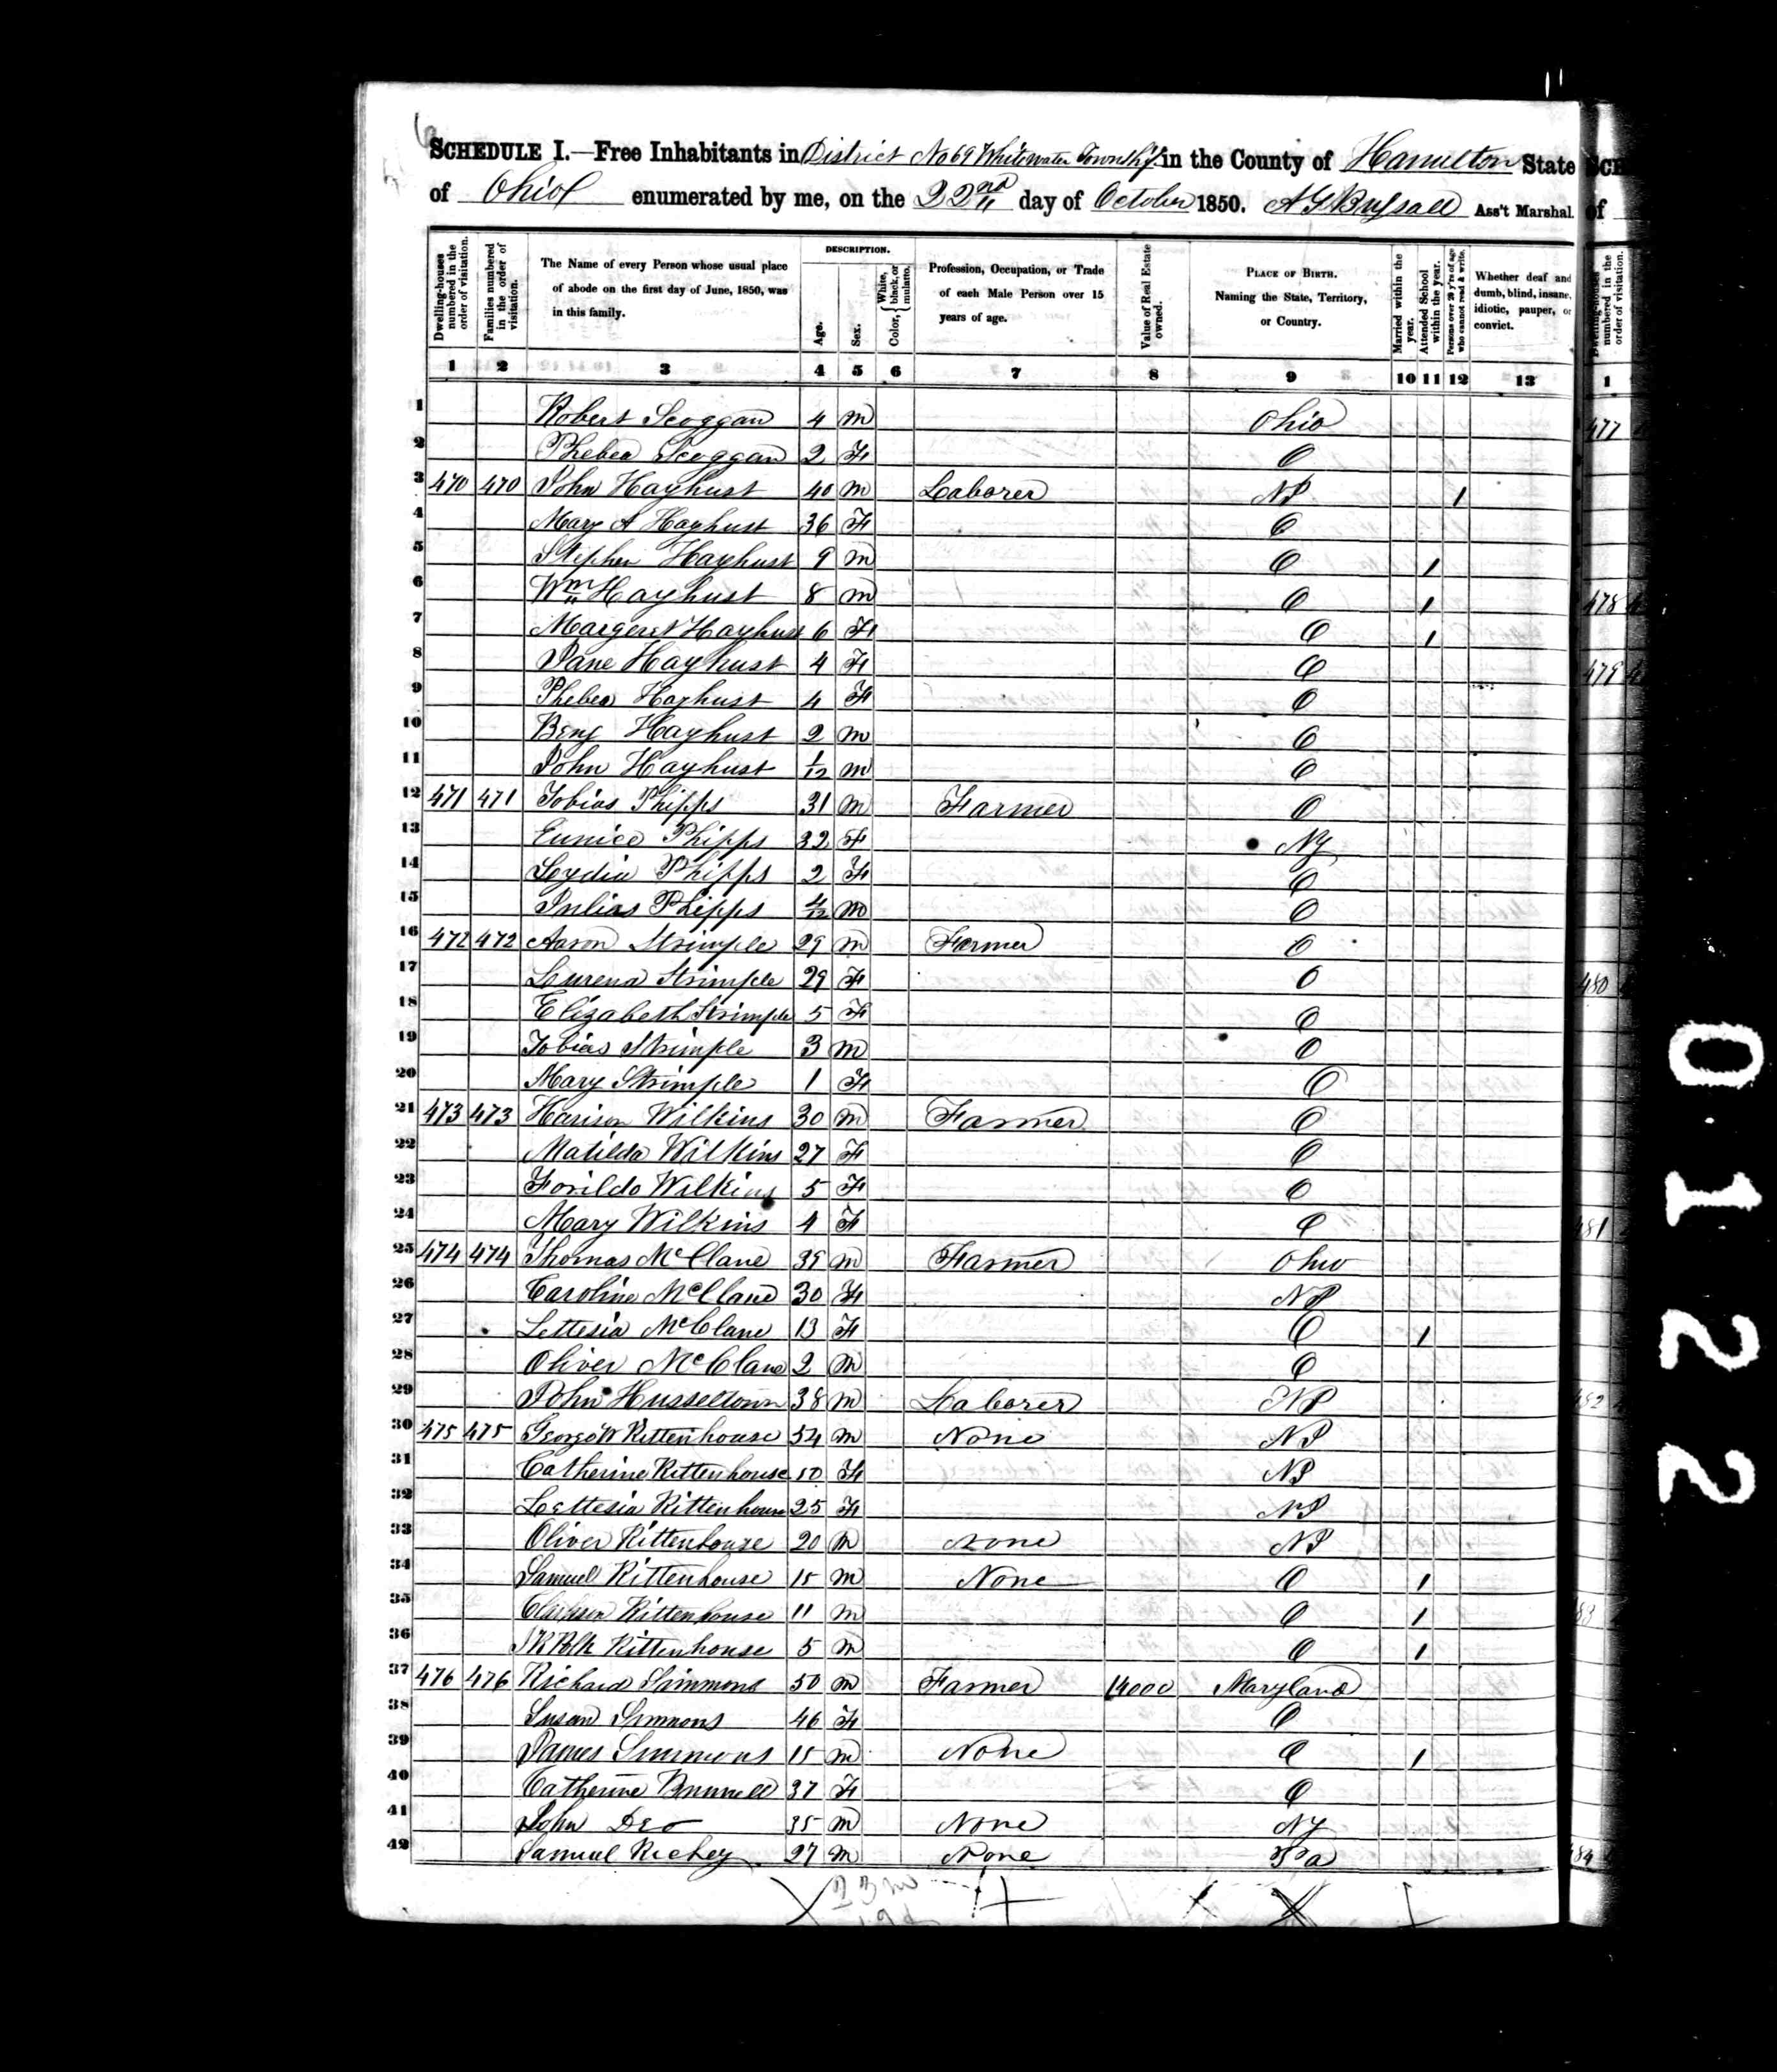 SCHEDULE I.—Free Inhabitants in District No 69 Whitewater Township in the County of Hamilton State
of Ohio enumerated by me, on the 22nd day of October 1850. Ass't Marshal.
Dwelling-houses numbered in the order of visitation.
Families numbered in the order of visitation.
The Name of every Person whose usual place of abode on the first day of June, 1850, was in this family.
DESCRIPTION.
Age.
Sex.
Color, { White, black, or mulatto.
Profession, Occupation, or Trade of each Male Person over 15 years of age.
Value of Real Estate owned.
PLACE OF BIRTH. Naming the State, Territory, or Country.
Married within the year.
Attended School within the year.
Persons over 20 y'rs of age who cannot read & write.
Whether deaf and dumb, blind, insane, idiotic, pauper, or convict.
1 2 3 4 5 6 7 8 9 10 11 12 13 1
1 Robert Scoggan 4 m Ohio 477
2 Phebea Scoggan 2 F O
3 470 470 John Hayhust 40 m Laborer NJ 1
4 Mary A Hayhust 36 F O
5 Stephen Hayhust 9 m O 1
6 Wm Hayhust 8 m O 1 478
7 Margeret Hayhust 6 F O 1
8 Jane Hayhust 4 F O 479
9 Phebea Hayhust 4 F O
10 Benj Hayhust 2 m O
11 John Hayhust 1/12 m O
12 471 471 Tobias Phipps 31 m Farmer O
13 Eunice Phipps 32 F NY
14 Lydia Phipps 2 F O
15 Julias Phipps 4/12 m O
16 472 472 Aaron Strimple 29 m Farmer O
17 Lurena Strimple 29 F O 480
18 Elizabeth Strimple 5 F O
19 Tobias Strimple 3 m O
20 Mary Strimple 1 F O
21 473 473 Harison Wilkins 30 m Farmer O
22 Matilda Wilkins 27 F O
23 Wilkins 5 F O
24 Mary Wilkins 4 F O 481
25 474 474 Thomas McClane 39 m Farmer Ohio
26 Caroline McClane 30 F NJ
27 Lettesia McClane 13 F O 1
28 Oliver McClane 2 m O
29 John Husseltown 38 m Laborer NJ 482
30 475 475 George W Rittenhouse 54 m None NJ
31 Catherine Rittenhouse 50 F NJ
32 Lettesia Rittenhouse 25 F NJ
33 Oliver Rittenhouse 20 m None NJ
34 Samuel Rittenhouse 15 m None O 1
35 Rittenhouse 11 m O 1 483
36 J K Polk Rittenhouse 5 m O 1
37 476 476 Richard Simmons 50 m Farmer 14000 Maryland
38 Susan Simmons 46 F O
39 James Simmons 15 m None O 1
40 Catherine 37 F O
41 John Deo 35 m None NY
42 Samuel Richey 27 m None Pa 484
23 m
0122